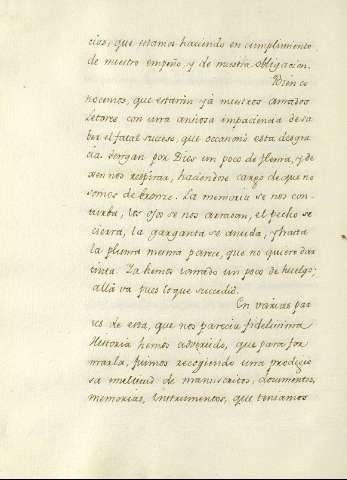 civo, que estamos haciendo en cumplimiento
de nuestro empeño, y de nuestra obligacion.
Bien co
nocemos, que estaràn yà nuestros amados
Letores con una ansiosa impaciencia de sa
ber el fatal suceso, que occasionò esta desgra
cia. tengan por Dios un poco de flema, y de
xennos respirar, haciendose cargo de que no
somos de bronze. La memoria se nos con
turba, los ojos se nos arrasan, el pecho se
cierra, la garganta se anuda, y hasta
la pluma misma parece, que no quiere dar
tinta. Ya hemos tomado un poco de huelgo;
allà va pues lo que sucediò.
En varias par
tes de esta, que nos parecia fidelissima
Historia hemos advertido, que para for
marla, fuimos recogiendo una prodigio
sa multitud de manuscritos, documentos,
memorias, instrumentos, que teniamos